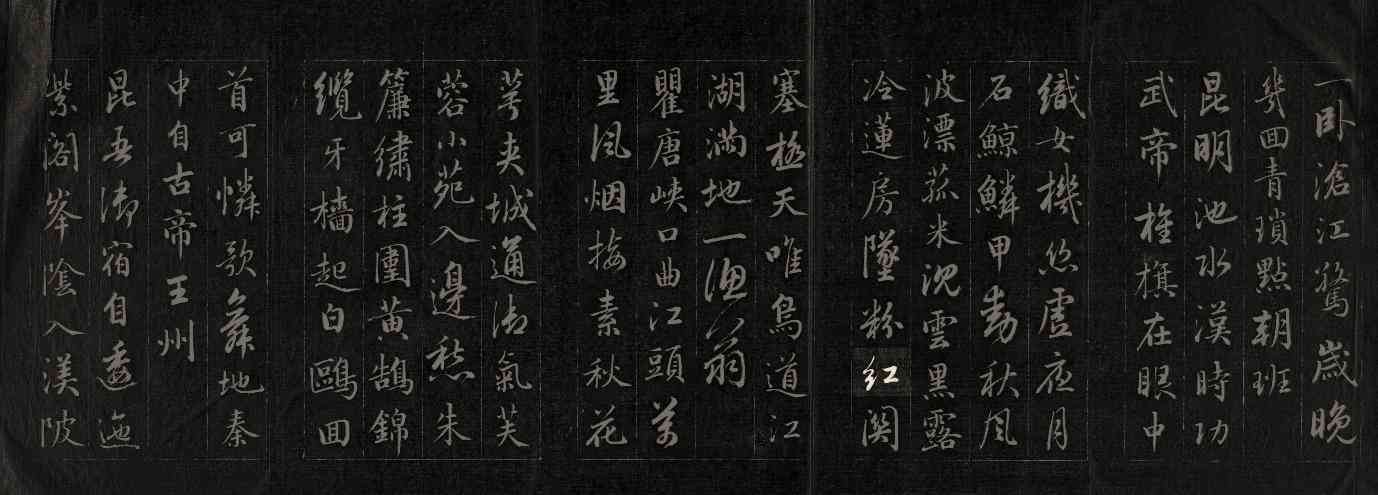 一卧滄江驚歲晚
幾回青瑣點朝班
昆明池水漢時功
武帝旌旗在眼中
織女機絲虛夜月
石鯨鱗甲動秋風
波漂菰米沉雲黑露
冷蓮房墜粉紅関
塞極天唯鳥道江
湖滿地一漁翁
瞿唐峽口曲江頭萬
里風烟接素秋花
萼夾城通御氣芙
蓉小苑入邊愁朱
簾繡柱圍黃鵠錦
纜牙檣起白鷗回
首可憐歌舞地秦
中自古帝王州
昆吾御宿自逶迤
紫閣峯陰入渼陂